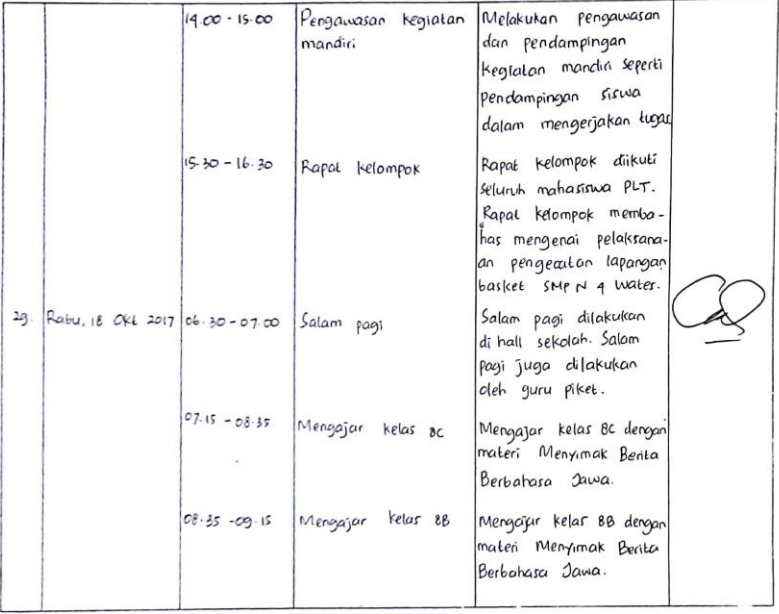 14.00 - 15.00 Pengawasan kegiatan Melakukan pengawasan
mandiri dan pendampingan
kegiatan mandiri seperti
pendampingan siswa
dalam mengerjakan tugas
15.30 - 16.30 Rapat kelompok Rapat kelompok diikuti
seluruh mahasiswa PLT.
Rapat kelompok memba-
has mengenai pelaksana-
an pengecatan lapangan
basket SMP N 4 Wates.
29. Rabu, 18 Okt 2017 06.30 - 07.00 Salam pagi Salam pagi dilakukan
di hall sekolah. Salam
pagi juga dilakukan
oleh guru piket.
07.15 - 08.35 Mengajar kelas 8C Mengajar kelas 8C dengan
materi Menyimak Berita
Berbahasa Jawa.
08.35 - 09.15 Mengajar kelas 8B Mengajar kelas 8B dengan
materi Menyimak Berita
Berbahasa Jawa.